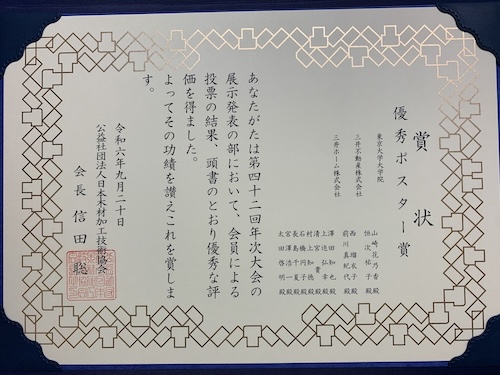 賞状
優秀ポスター賞
東京大学大学院
山崎花乃香殿
恒次祐子殿
三井不動産株式会社
西 瑠衣子殿
前川真紀代殿
三井ホーム株式会社
澤田知也殿
上辺弘幸殿
清宮
村上知徳殿
石橋円子殿
長島 夏殿
宮澤千一殿
太田啓明殿
あなたがたは第四十二回年次大会の
展示発表の部において、会員による
投票の結果、頭書のとおり優秀な評
価を得ました。
よってその功績を讃えこれを賞しま
す。
令和六年九月二十日
公益社団法人日本木材加工技術協会
会長 信田 聡